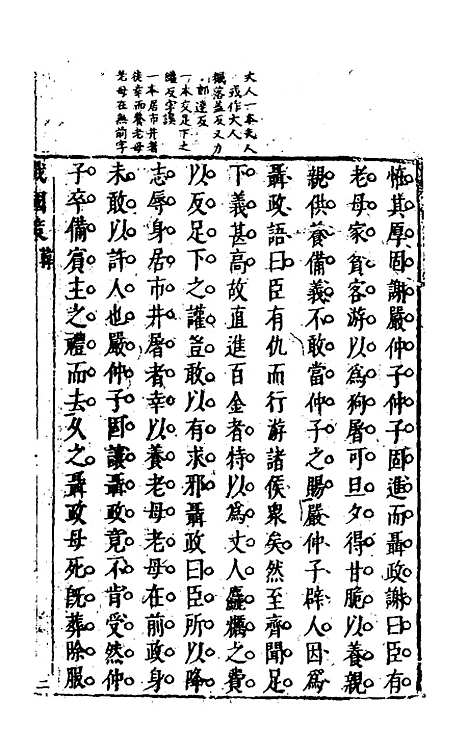 丈人一本夫人
或作大人
糲落蓋反又力
郎達反
一本交足下之
驩反字誤
一本居市井者
徒幸而養老母
老母在無前字
怪其厚固謝嚴仲子仲子固進而聶政謝曰臣有
老母家貧客游以爲狗屠可旦夕得甘脆以養親
親供養備義不敢當仲子之賜嚴仲子辟人因爲
聶政語曰臣有仇而行游諸侯衆矣然至齊聞足
下義甚高故直進百金者特以爲丈人麤糲之費
以反足下之讙豈敢以有求邪聶政曰臣所以降
志辱身居市井屠者幸以養老母老母在前政身
未敢以許人也嚴仲子固讓聶政竟不肯受然仲
子卒備賓主之禮而去久之聶政母死旣葬除服
戰國策 韓
二